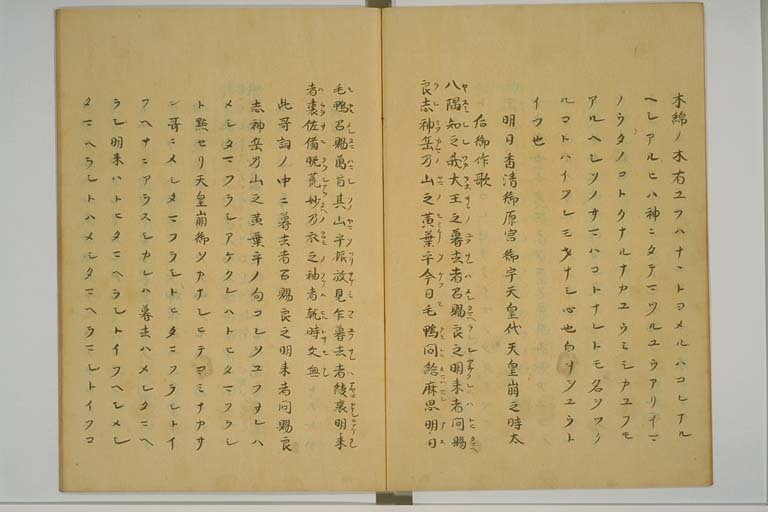 木綿ノ木右ユフハナントヨメルハコレナル
ヘシアルヒハ神ニタテマツルユウアリイマ
ノウタノコトクナルナカユウミシカユフモ
アルヘシソノサマハコトナレトモ名ツツリ
ルコトハイツレモタナシ心也白サツユウト
イフ也
明日香清御原宮御宇天皇代天皇崩之時太
后御作歌
八隅知之我大王之暮去者召賜良之明来者問賜
良志神岳乃山之黄葉乎今日毛鴨問給麻思明日
毛鴨召賜萬旨其山乎振放見乍暮去者綾哀明来
者裏佐備晩荒妙乃衣之袖者乾時文無
此哥詞ノ中ニ暮去者召賜良之明来者問賜良
志神岳乃山之黄葉乎ノ句コレヲユフサレハ
メシタマフラシアケクレハトヒタマフラシ
ト點セリ天皇崩御ツカナレヒテマミナカサ
ン哥ニメシタマフラシトヒタマフラシトイ
フヘキニアラスシカレハ暮去ハメシタマヘ
ラシ明来ハトヒタマヘラシトイフヘシメシ
タマヘラシトハメシタマヘラマシトイフコ